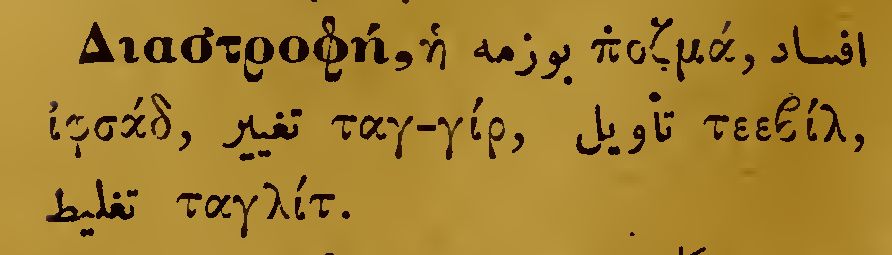 Διαστροφή, ἡ بوزمه π̇οζμά, افساد
ἰφσάδ, تغيير ταγ-γίρ, تأويل τεεβίλ,
تغليط ταγλίτ.